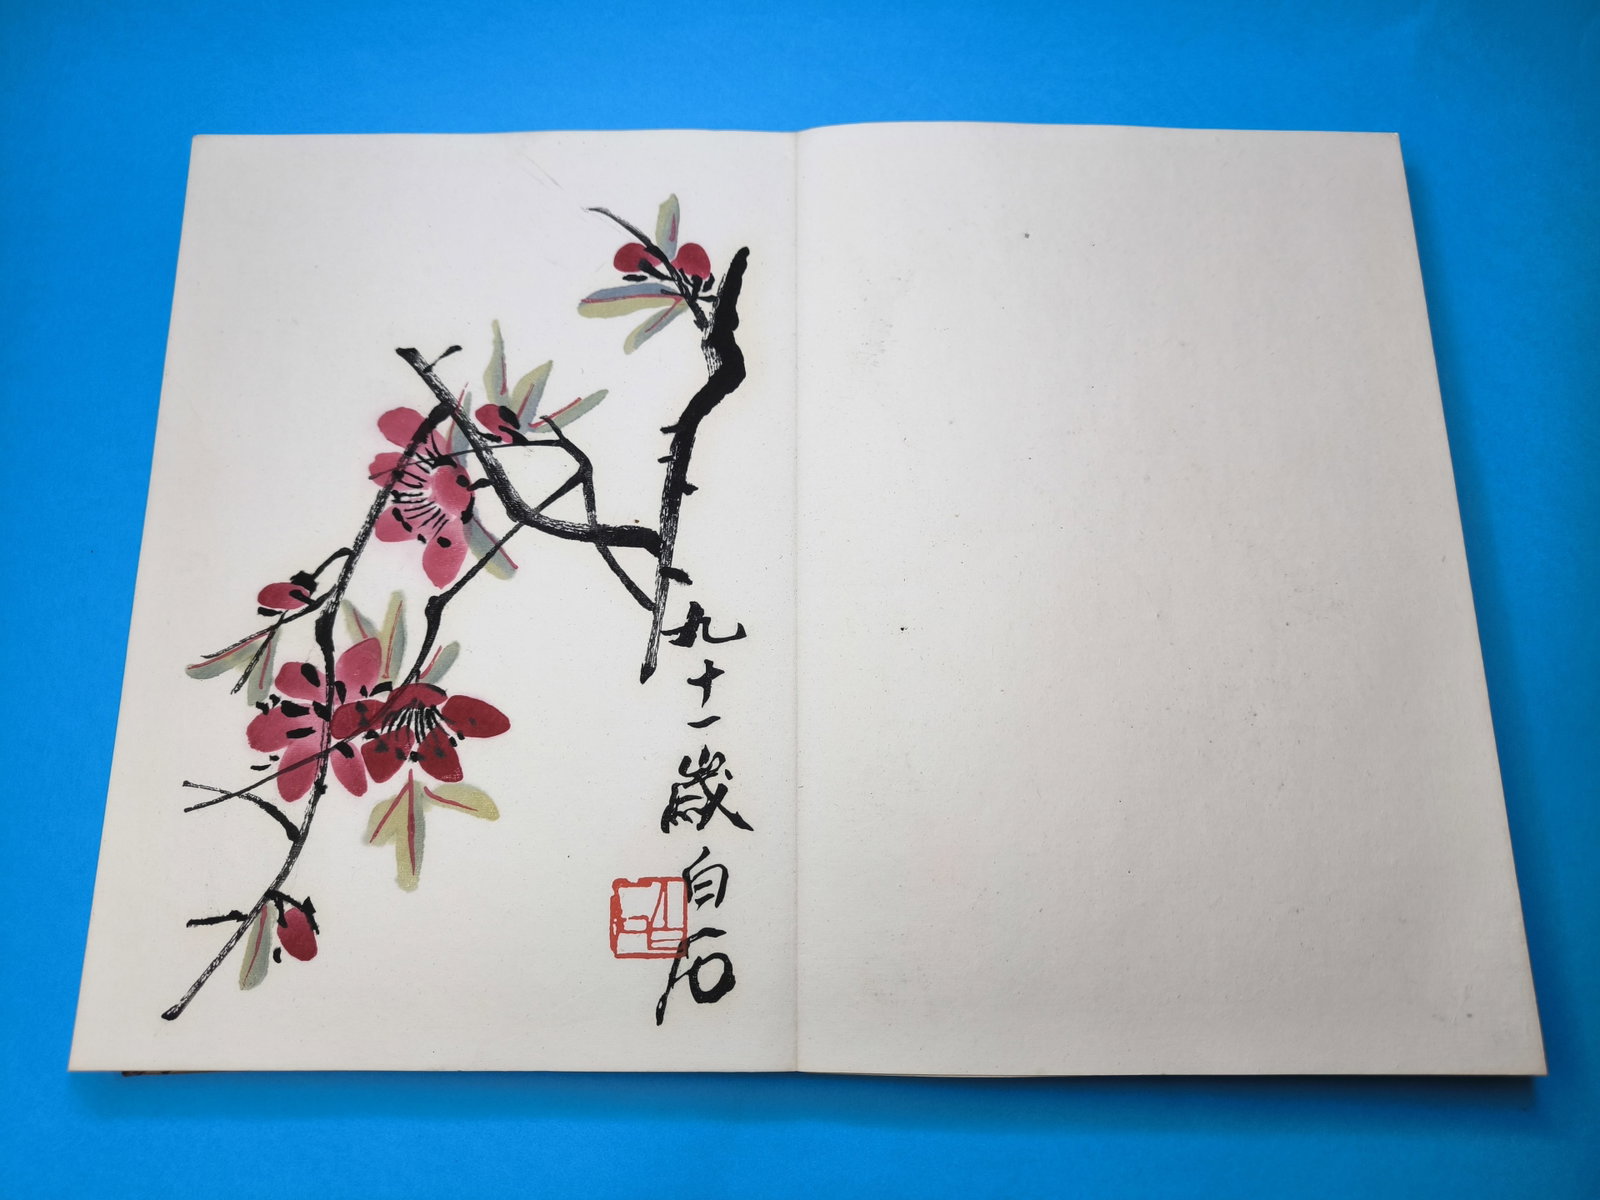 九十一歲白石